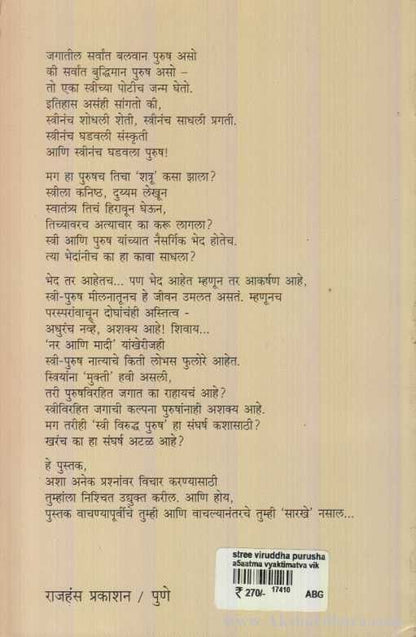 जगातील सर्वात बलवान पुरुष असो
की सर्वात बुद्धिमान पुरुष असो –
तो एका स्त्रीच्या पोटीच जन्म घेतो.
इतिहास असंही सांगतो की,
स्त्रीनंच शोधली शेती, स्त्रीनंच साधली प्रगती.
स्त्रीनंच घडवली संस्कृती
आणि स्त्रीनंच घडवला पुरुष!
मग हा पुरुषच तिचा 'शत्रू' कसा झाला?
स्त्रीला कनिष्ठ, दुय्यम लेखून
स्वातंत्र्य तिचं हिरावून घेऊन,
तिच्यावरच अत्याचार का करू लागला?
स्त्री आणि पुरुष यांच्यात नैसर्गिक भेद होतेच.
त्या भेदांनीच का हा कावा साधला?
भेद तर आहेतच... पण भेद आहेत म्हणून तर आकर्षण आहे,
स्त्री-पुरुष मीलनातूनच हे जीवन उमलत असतं. म्हणूनच
परस्परांवाचून दोघांचंही अस्तित्व -
अधुरंच नव्हे, अशक्य आहे! शिवाय...
'नर आणि मादी' यांखेरीजही
स्त्री-पुरुष नात्याचे किती लोभस फुलोरे आहेत.
स्त्रियांना 'मुक्ती' हवी असली,
तरी पुरुषविरहित जगात का राहायचं आहे?
स्त्रीविरहित जगाची कल्पना पुरुषांनाही अशक्य आहे.
मग तरीही 'स्त्री विरुद्ध पुरुष' हा संघर्ष कशासाठी?
खरंच का हा संघर्ष अटळ आहे?
हे पुस्तक,
अशा अनेक प्रश्नांवर विचार करण्यासाठी
तुम्हांला निश्चित उद्युक्त करील. आणि होय,
पुस्तक वाचण्यापूर्वीचे तुम्ही आणि वाचल्यानंतरचे तुम्ही 'सारखे' नसाल...
stree viruddha purusha
a5aatma vyaktimatva vik
₹ 270/- 17410 ABG
राजहंस प्रकाशन / पुणे